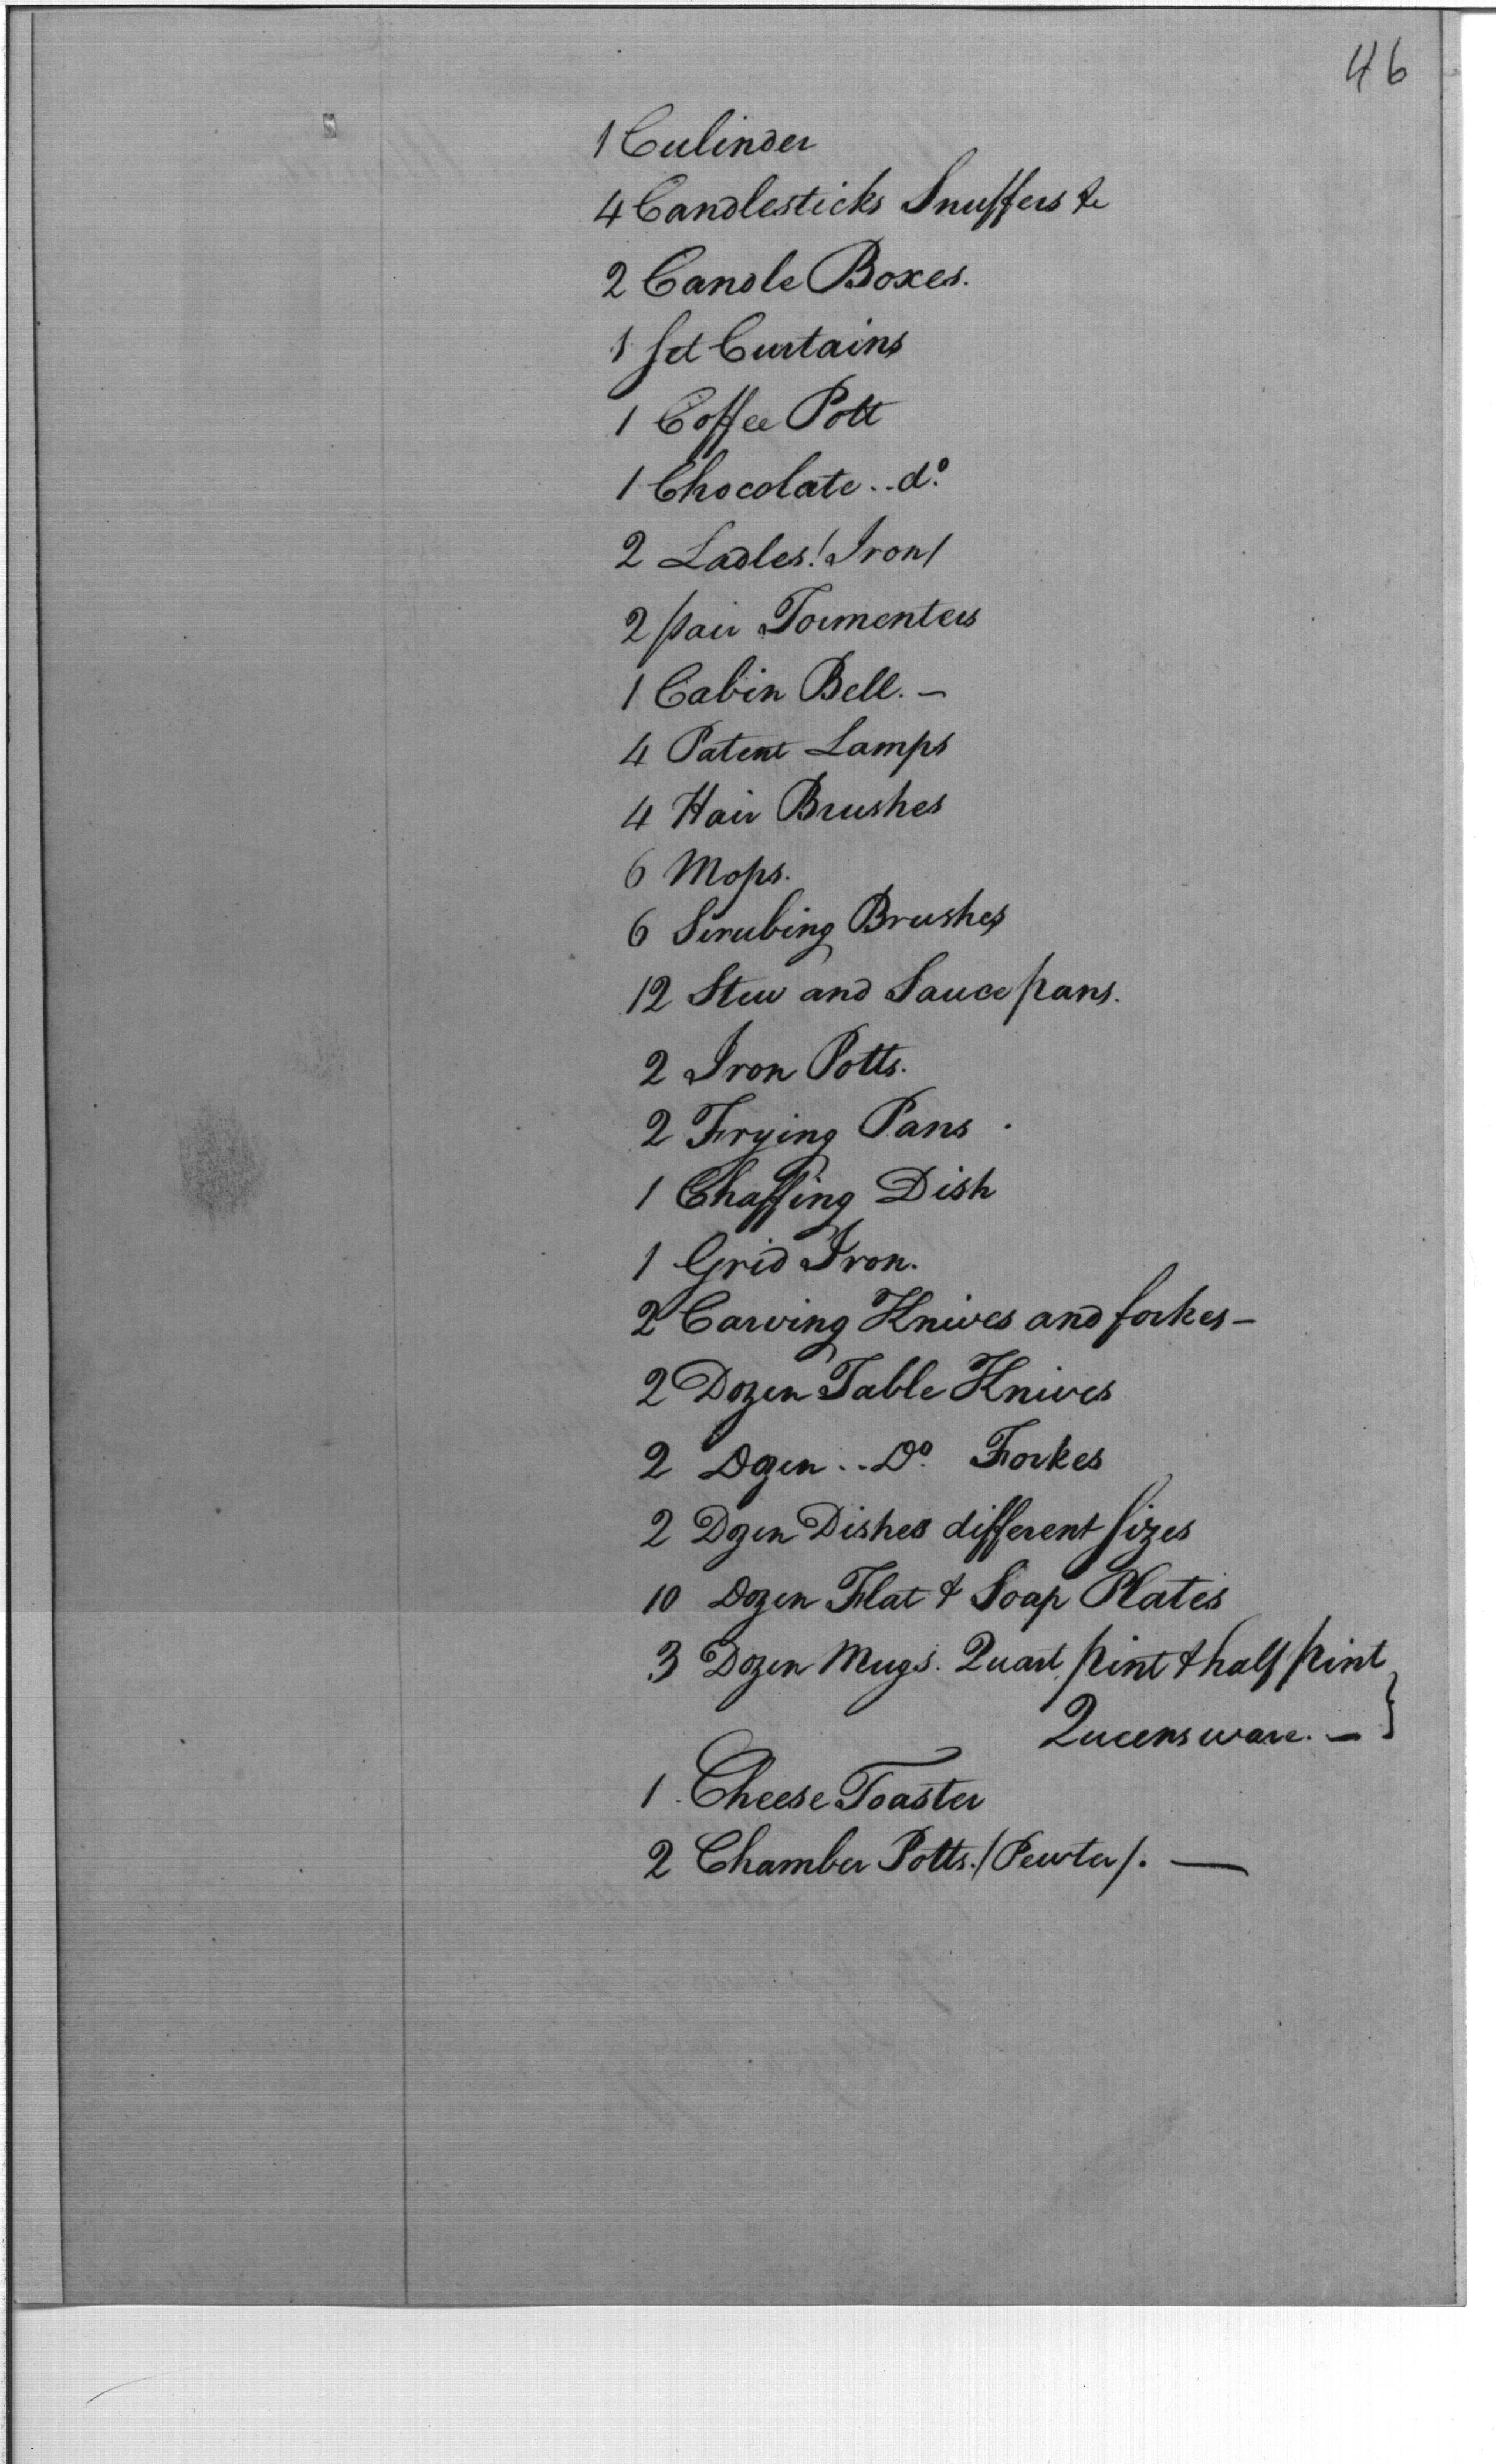 46
1 Culinder
4 Candlesticks Snuffers &c
2 Candle Boxes.
1 Set Curtains
1 Coffee Pott
1 Chocolate .. do.
2 Ladles /Iron/
2 pair Tormenters
1 Cabin Bell. —
4 Patent Lamps
4 Hair Brushes
6 Mops.
6 Scrubing Brushes
12 Stew and Sauce pans.
2 Iron Potts.
2 Frying Pans .
1 Chaffing Dish
1 Grid Iron.
2 Carving Knives and forkes —
2 Dozen Table Knives
2 Dozen .. Do. Forkes
2 Dozen Dishes different Sizes
10 Dozen Flat & Soap Plates
3 Dozen Mugs. Quart, pint & half pint }
Queens ware. —
1 Cheese Toaster
2 Chamber Potts. /Pewter/. —